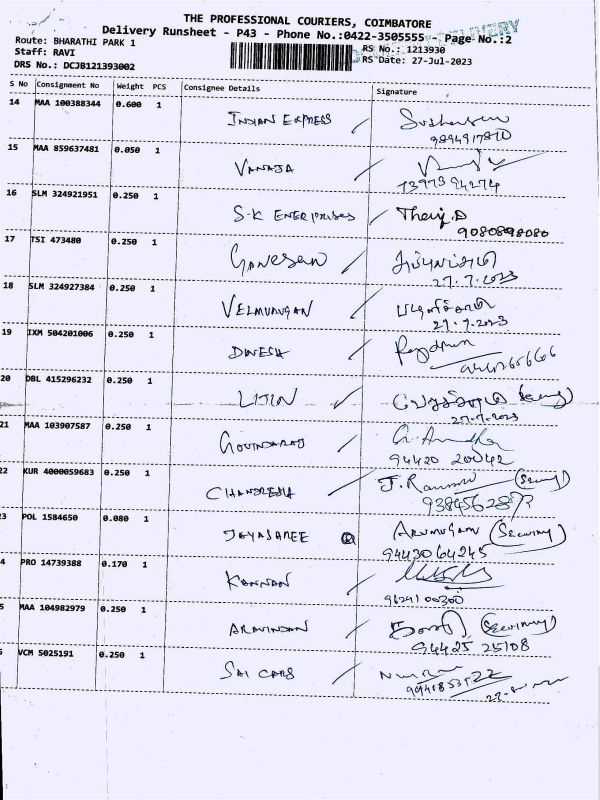 THE PROFESSIONAL COURIERS, COIMBATORE
Delivery Runsheet - P43 - Phone No.:0422-3505555 - Page No.:2
DELIVERY
Route: BHARATHI PARK 1
RS No.: 1213930
Staff: RAVI
RS Date: 27-Jul-2023
DRS No.: DCJB121393002
S No Consignment No Weight PCS Consignee Details Signature
14 MAA 100388344 0.600 1 INDIAN EXPRESS
9894917870
15 MAA 859637481 0.050 1 VANAJA
7397394274
16 SLM 324921951 0.250 1 S-K ENERPRISES
9080898080
17 TSI 473480 0.250 1 GANESAN
27.7.2023
18 SLM 324927384 0.250 1 VELMURUGAN
27.7.2023
19 IXM 504201006 0.250 1 DINESH
20 DBL 415296232 0.250 1 LITIN
27.7.2023
21 MAA 103907587 0.250 1 GOVINDARAJ
94420 20042
22 KUR 4000059683 0.250 1 CHANDRESH J. (Security)
3 POL 1584650 0.080 1 JAYASHREE ARUMUGAM (Security)
9443064245
4 PRO 14739388 0.170 1 KANNAN
9629100300
5 MAA 104982979 0.250 1 ARAVINDAN (Security)
94425 25108
VCM 5025191 0.250 1 SAI CARS